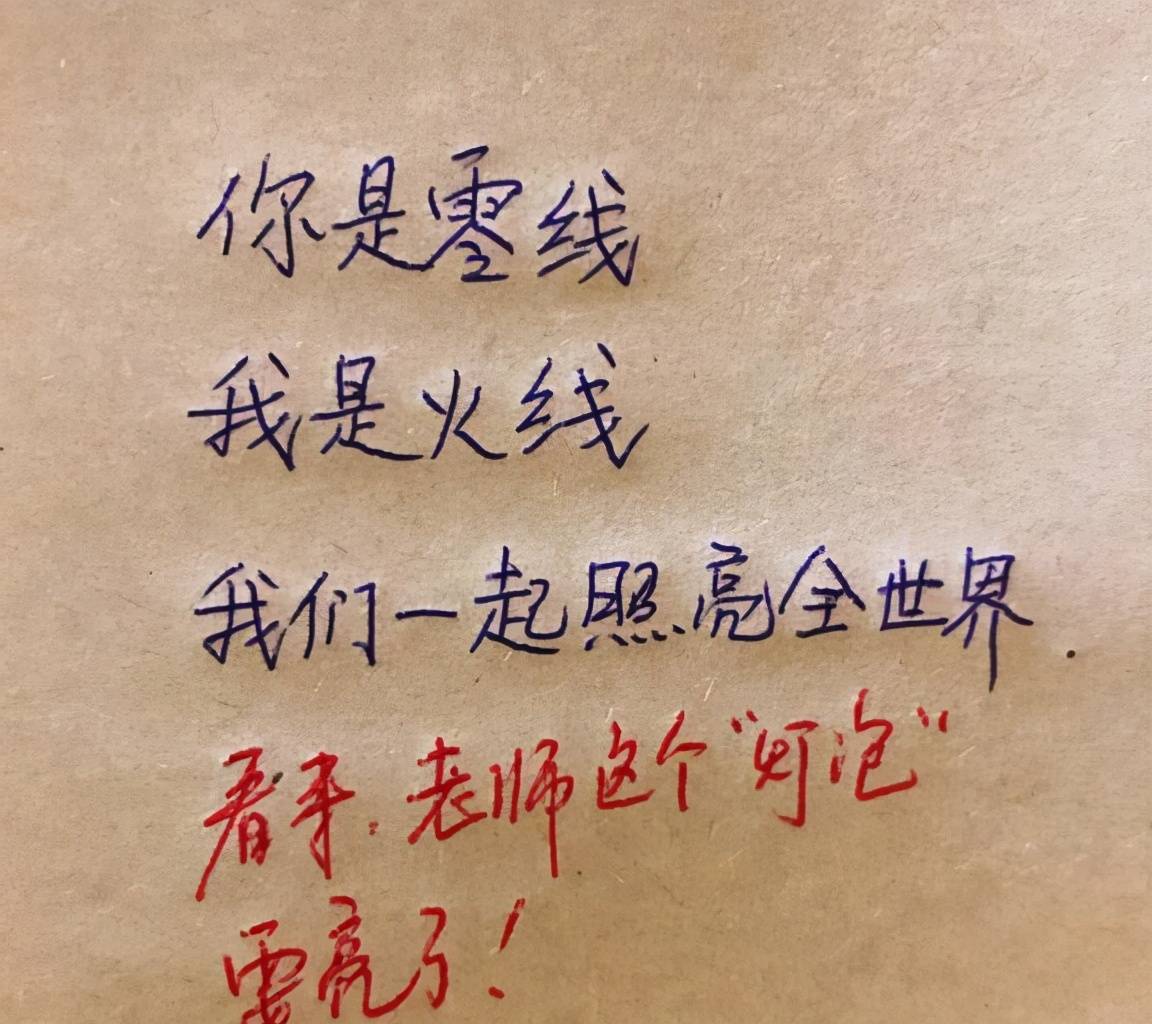 你是零线
我是火线
我们一起照亮全世界.
看来.老师这个“灯泡”
要亮了!